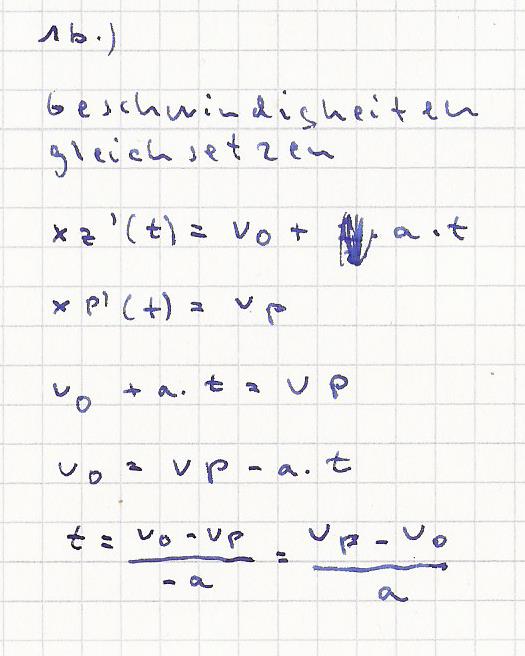 1b.)
Geschwindigkeiten
gleichsetzen
xz'(t) = v0 + a·t
xp'(t) = vp
v0 + a·t = vp
v0 = vp - a·t
t = (v0 - vp)/(-a) = (vp - v0)/a